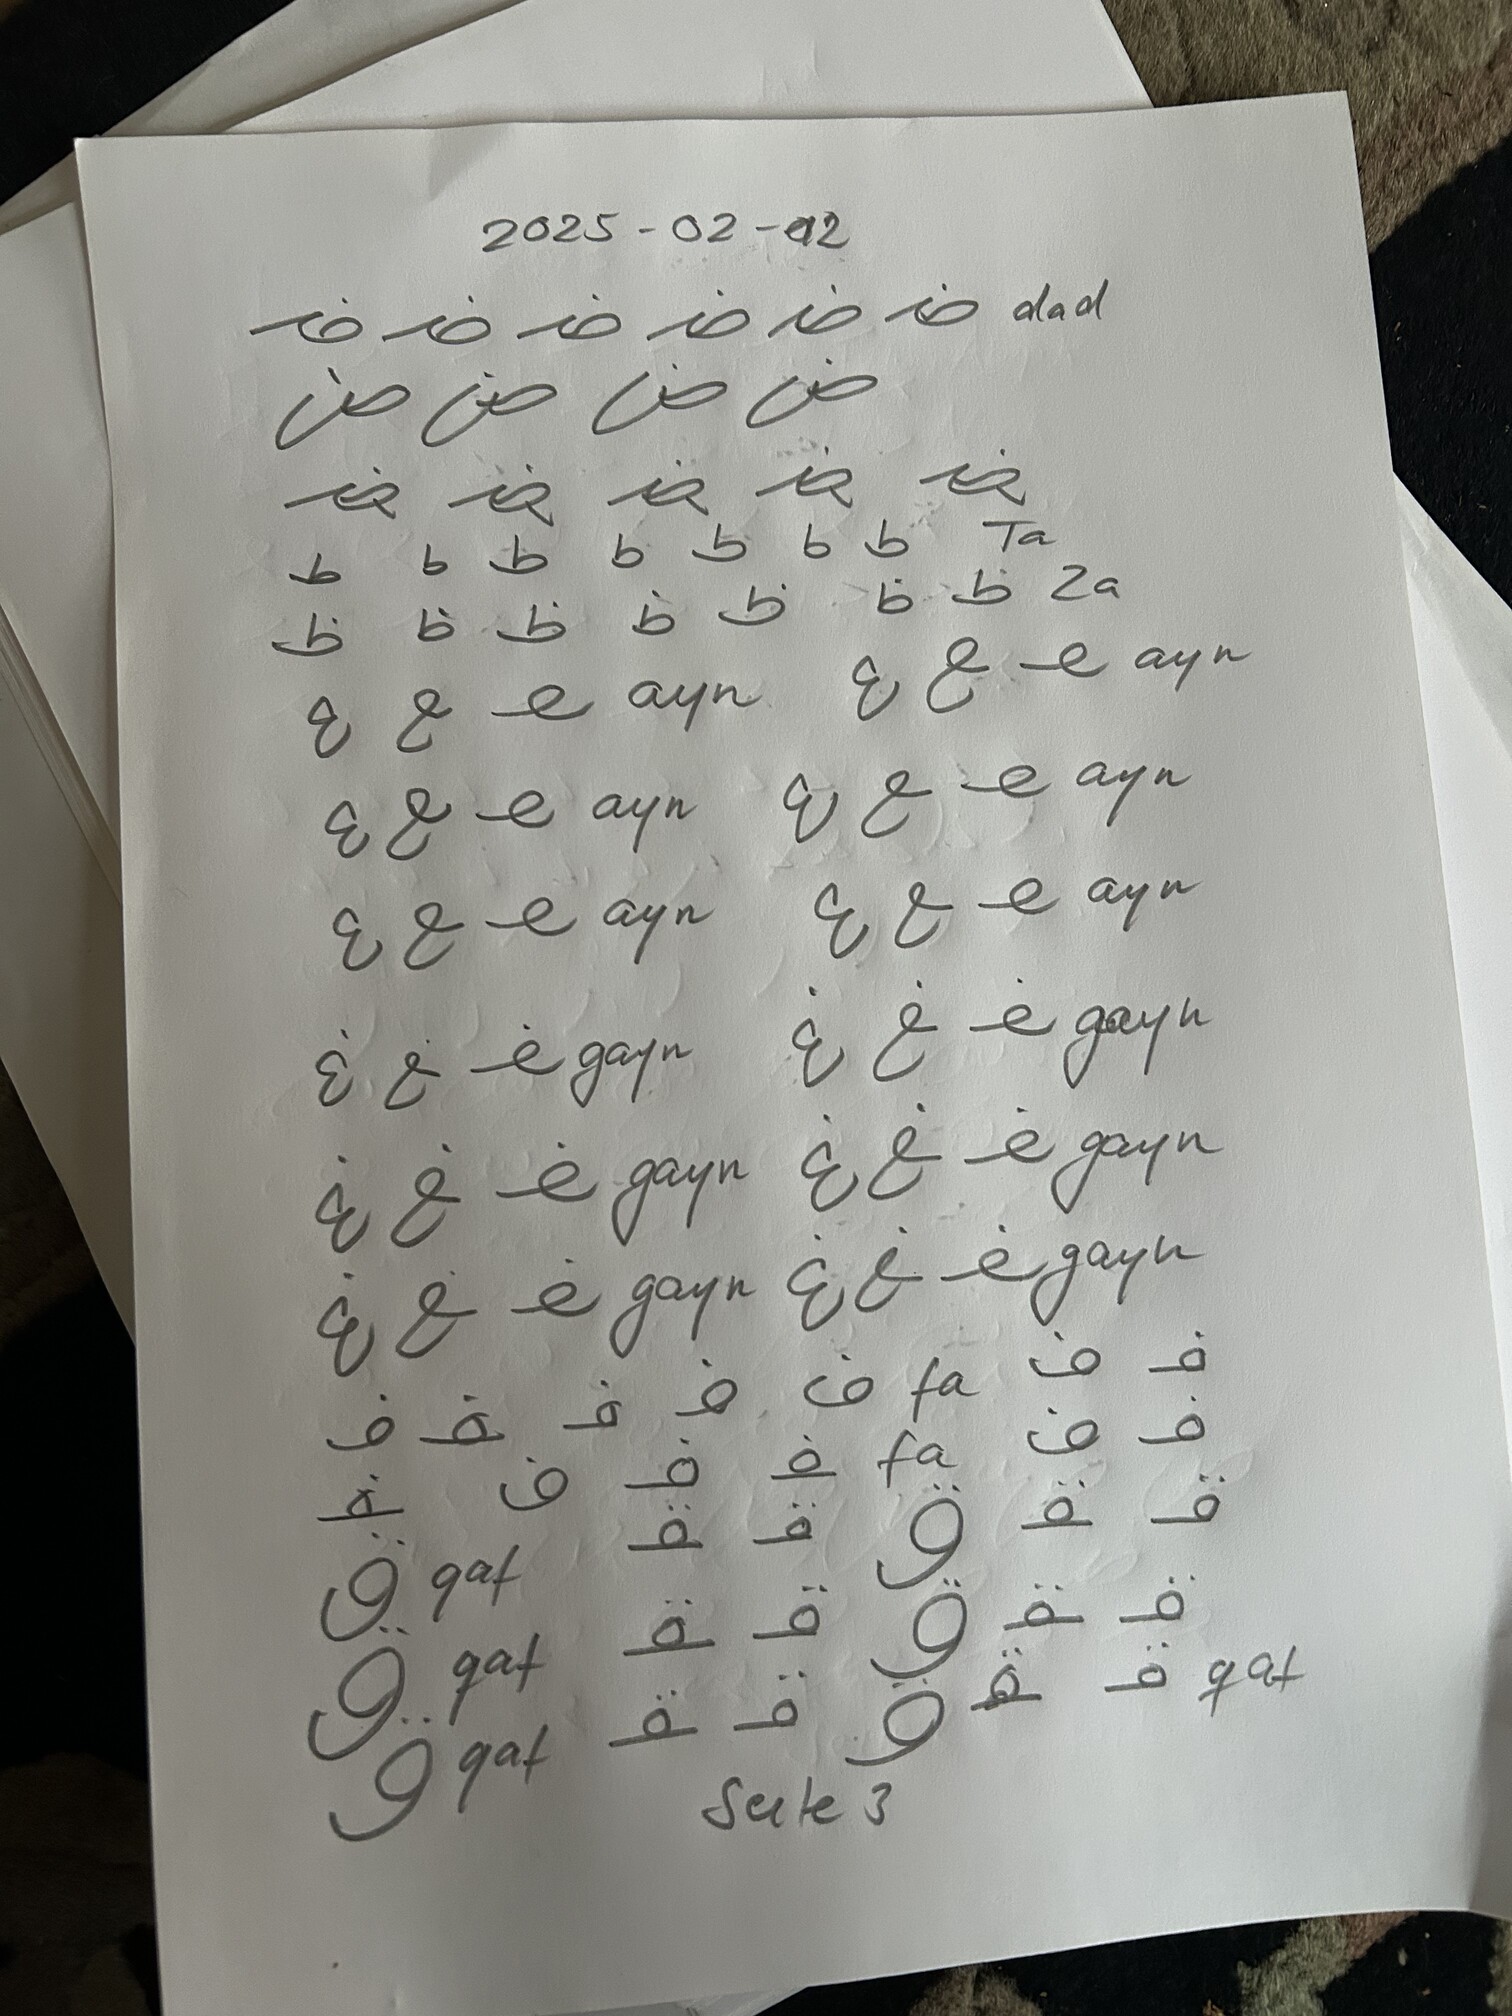 2025-02-02
ضـ ضـ ضـ ضـ ضـ ضـ dad
ض ض ض ض
ـضـ ـضـ ـضـ ـضـ ـضـ
ط ط ط ط ط ط ط Ta
ظ ظ ظ ظ ظ ظ ظ Za
ع ـع عـ ayn ع ـع عـ ayn
ع ـع عـ ayn ع ـع عـ ayn
ع ـع عـ ayn ع ـع عـ ayn
غ ـغ غـ gayn غ ـغ غـ gayn
غ ـغ غـ gayn غ ـغ غـ gayn
غ ـغ غـ gayn غ ـغ غـ gayn
ف ـفـ فـ ف ف fa ف فـ
ـفـ ف فـ ـفـ fa ف فـ
ق qaf ـقـ قـ ق ـقـ قـ
ق qaf ـقـ قـ ق ـقـ قـ
ق qaf ـقـ قـ ق ـقـ قـ qaf
Seite 3